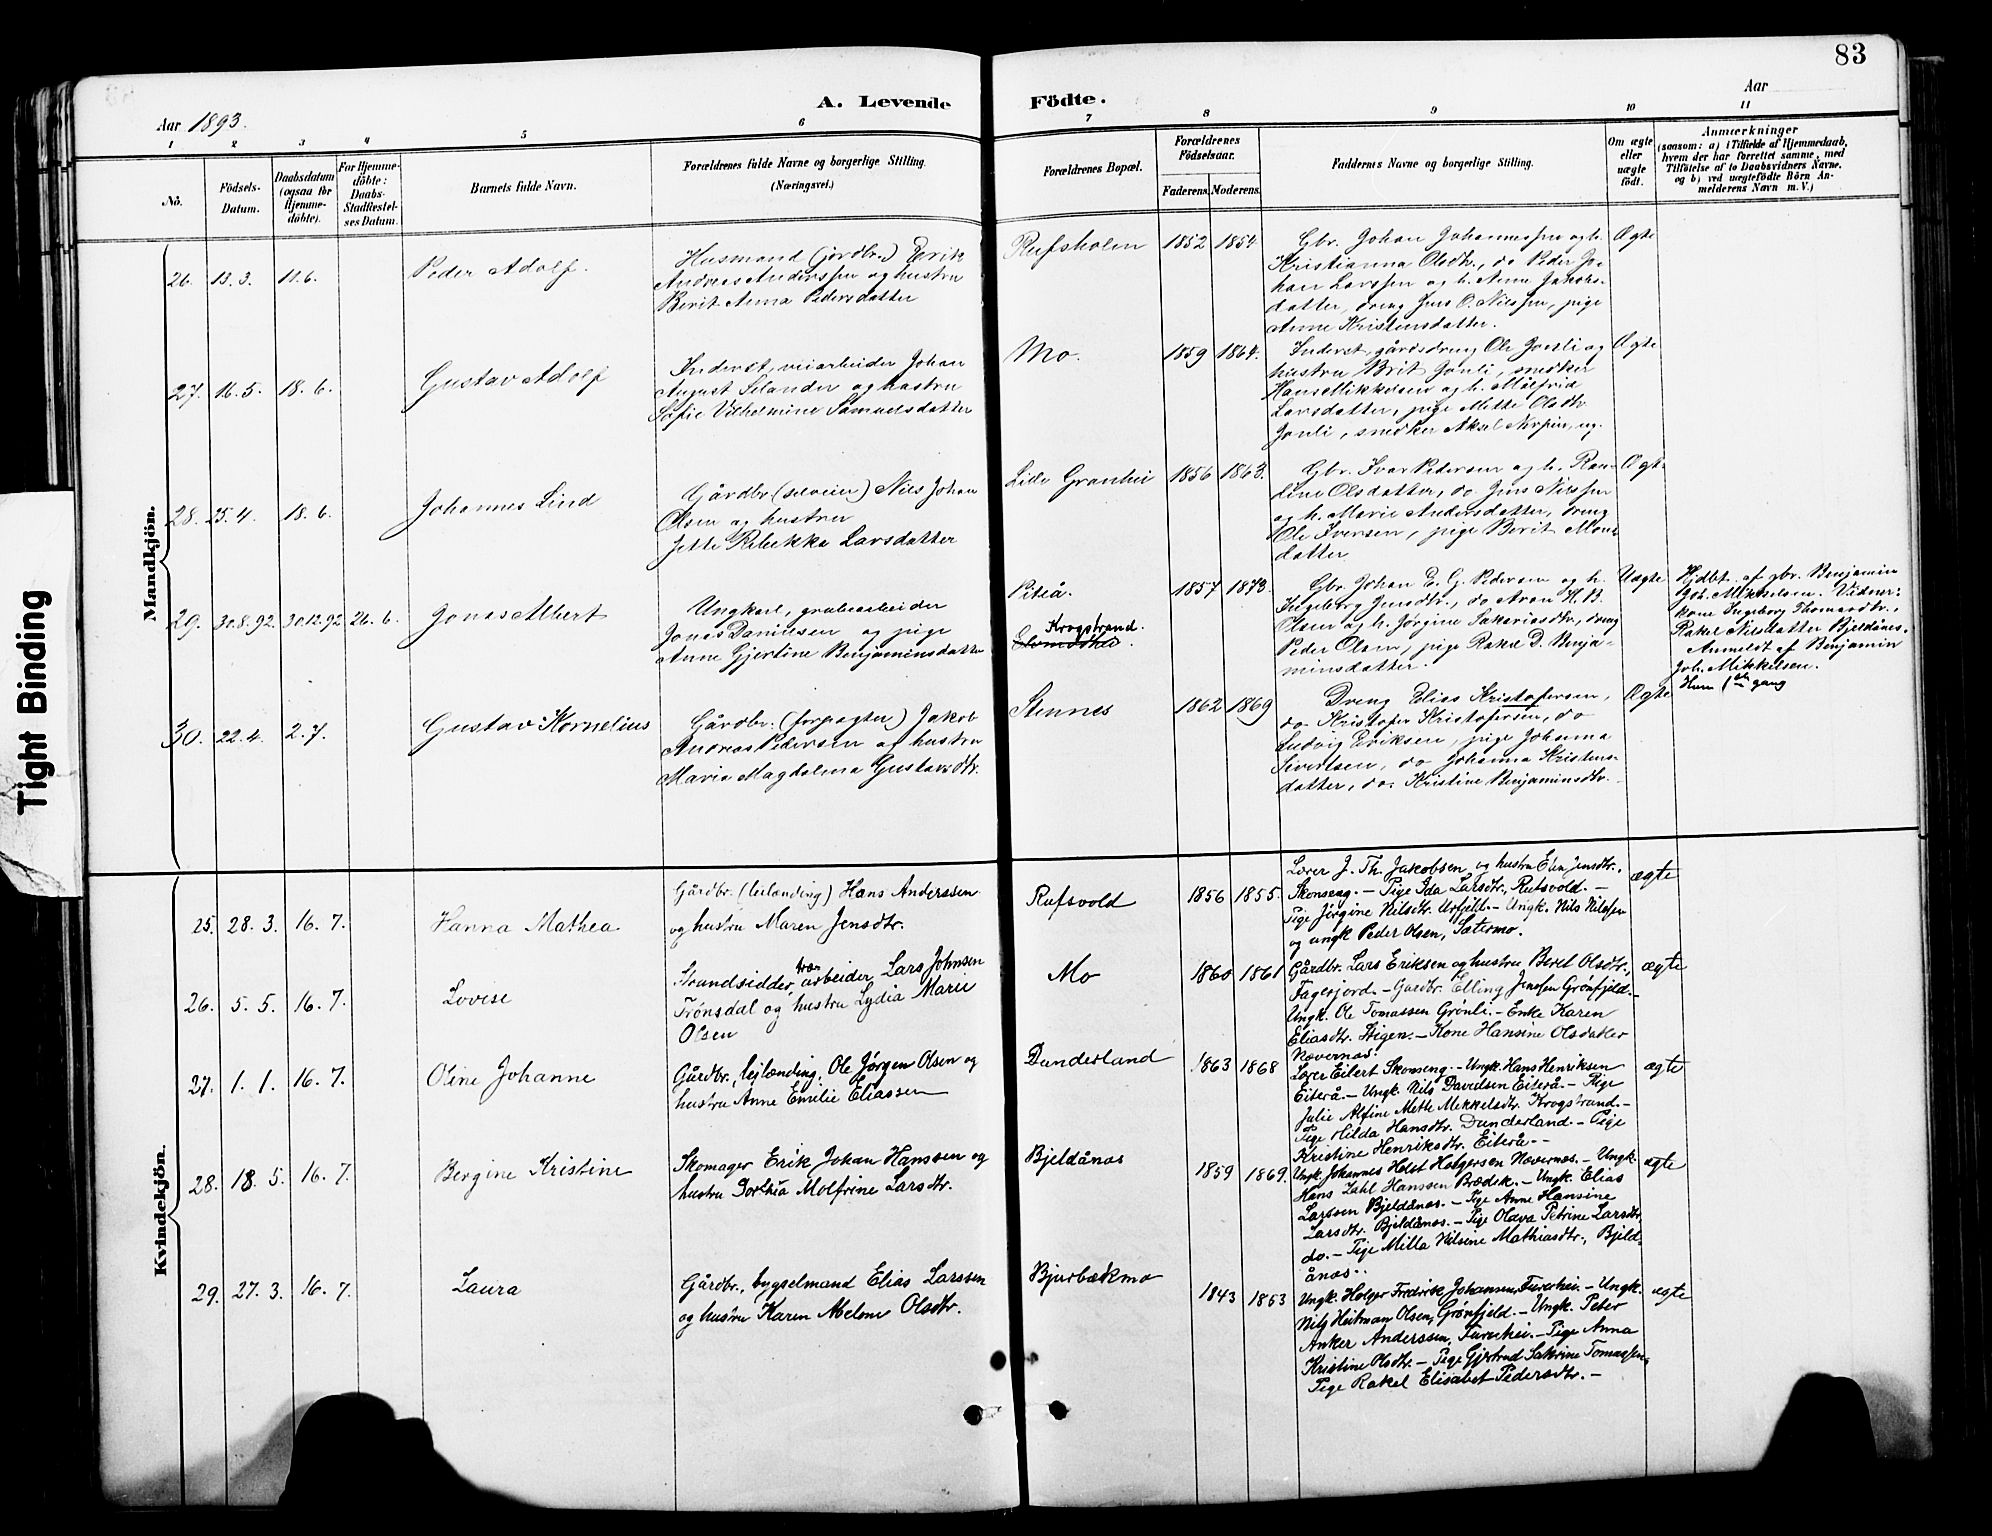 83
A. Levende Födte.
Aar 1893.
Aar
1 2 3 4 5 6 7 8 9 10 11
No.
Födsels-Datum.
Daabsdatum (ogsaa for Hjemme-döbte).
For Hjemme-döbte: Daabs-Stadfæstel-ses Datum.
Barnets fulde Navn.
Forældrenes fulde Navne og borgerlige Stilling.
(Næringsvei.)
Forældrenes Bopæl.
Forældrenes Födselsaar.
Faderens. Moderens.
Faddernes Navne og borgerlige Stilling.
Om ægte eller uægte födt.
Anmærkninger
(saasom: a) i Tilfælde af Hjemmedaab,
hvem der har forrettet samme, med
Tilföielse af to Daabsvidners Navne,
og b) ved uægtefödte Börn An-
melderens Navn m. V.)
Tight Binding
Mandkjön.
26. 13. 3. 11. 6.
Peder Adolf.
Husmand (jordbr.) Eerik
Andreas Anderssen og hustru
Berit Anna Pedersdatter
Rufsholm 1852 1854
Gbr. Johan Johannessen og h.
Kristianna Olsdtr., do Peder Jo-
han Larssen og h. Anne Jakobs-
datter, dreng Jens O. Nilssen, pige
Anne Kristensdatter.
Ægte
27. 16. 5. 18. 6.
Gustav Adolf
Inderst, veiarbeider Johan
August Selander og hustru
Sofie Vilhelmine Samuelsdatter
Mo. 1859 1864.
Inderst, gårdsdreng Ole Jonli og
hustru Brit Jonli, snedker
Hans Mikkelsen og h. Målfrid
Larsdatter, pige Mette Olsdtr
Jonli, snedker Aksel
Ægte
28. 25. 4. 18. 6.
Johannes Lind
Gårdbr. (selveier) Nils Johan
Olsen og hustru
Jette Rebekka Larsdatter
Lille Granhei 1856 1863.
Gbr. Ivar Pedersen og h. Ran-
Line Olsdatter, do. Jens Nilssen
og h. Marie Andersdatter, dreng
Ole Iversen, pige Berit Mons-
datter
Ægte
29. 30.8.92. 30.12.92 26. 6.
Jonas Albert
Ungkarl, grubearbeider
Jonas Daniesen og pige
Anne Gjertine Benjaminsdatter
Piteå.
Krogstrand.
1857 1873.
Gbr. Johan E. G. Pedersen og h.
Ingeborg Jensdtr., do Aron H. B.
Olsen og h. Jørgine Sakariasdtr, dreng
Peder Olsen, pige Rakel D. Benja-
minsdatter.
Uægte
Hjdbt. af gbr. Benjamin
Joh. Mikkelsen. Vidner:
kone Ingeborg Thomasdtr.,
Rakel Nilsdatter Bjeldånes.
Anmeldt af Benjamin
Joh. Mikkelsen.
Hum 1ste gang
30. 22. 4. 2. 7.
Gustav Kornelius
Gårdbr. (forpagter) Jakob
Andreas Pedersen og hustru
Marie Magdalena Gustavsdtr.
Stennes 1862 1869
Dreng Elias Kristofersen,
do Kristofer Kristofersen, do
Ludvig Eriksen, pige Johanna
Sivertsen, do Johanna Kristens-
datter, do. Kristine Benjaminsdtr.
Ægte
Kvindekjön.
25. 28. 3. 16. 7.
Hanna Mathea
Gårdbr. (leilænding) Hans Anderssen
og hustru Maren Jensdtr.
Rufsvold 1856 1855.
Lærer J. Th. Jakobsen og hustru Elen Jensdtr.,
Skonseng. — Pige Ida Larsdtr, Rufsvold. —
Pige Jørgine Nilsdtr. Urfjell. — Ungk. Nils Nilssen
og ungk Peder Olsen, Sætermo.
ægte
26. 5. 5. 16. 7.
Lovise
Strandsidder, arbeider Lars Johnsen
Trønsdal og hustru Lydia Marie
Olsen
Mo 1860 1861
Gårdbr. Lars Eriksen og hustru Beret Olsdtr.,
Fagerjord. — Gårdbr. Elling Jensen Grønfjeld. —
Ungk. Ole Tomassen Grønli. — Enke Karen
Eliasdtr. Stigen. — Kone Hansine Olsdatter
Nævernes.
ægte
27. 1. 1. 16. 7.
Oline Johanne
Gårdbr., lejlænding, Ole Jørgen Olsen og
hustru Anne Emilie Eliassen
Dunderland 1863 1868
Lærer Eilert Skonseng. — Ungk. Hans Henriksen
Eiterå. — Ungk. Nils Davidsen Eiterå. — Pige
Julie Alfine Mette Mekkelsdtr. Krogstrand. —
Pige Hilda Hansdtr. Dunderland. — Pige
Kristine Henriksdtr. Eiterå. —
ægte
28. 18. 5. 16. 7.
Bergine Kristine
Skomager Erik Johan Hanssen og
hustru Dorthia Molfrine Larsdtr.
Bjeldånes 1859 1869.
Ungk. Johannes Holst Holgersen Nævernes. — Ungk.
Hans Zahl Hanssen Brædek. — Ungk. Elias
Larssen Bjeldånes. — Pige Anne Hansine
Larsdtr. Bjeldånes. — Pige Olava Petrine Larsdtr,
do. — Pige Milla Nilsine Mathiasdtr., Bjeld-
ånes.
ægte
29. 27. 3. 16. 7.
Laura
Gårdbr., bygselmand Elias Larssen
og hustru Karen Melene Olsdtr.
Bjurbækmo 1843 1853
Ungk. Holger Fredrik Johansen, Turerhei — Ungk.
Nils Heitman Olsen, Grønfjeld. — Ungk. Peter
Anker Anderssen, Turerhei. — Pige Anna
Kristine Olsdtr. — Pige Gjertrud Sakrine Tomassen,
Pige Rakel Elisabet Pedersdtr. —
ægte